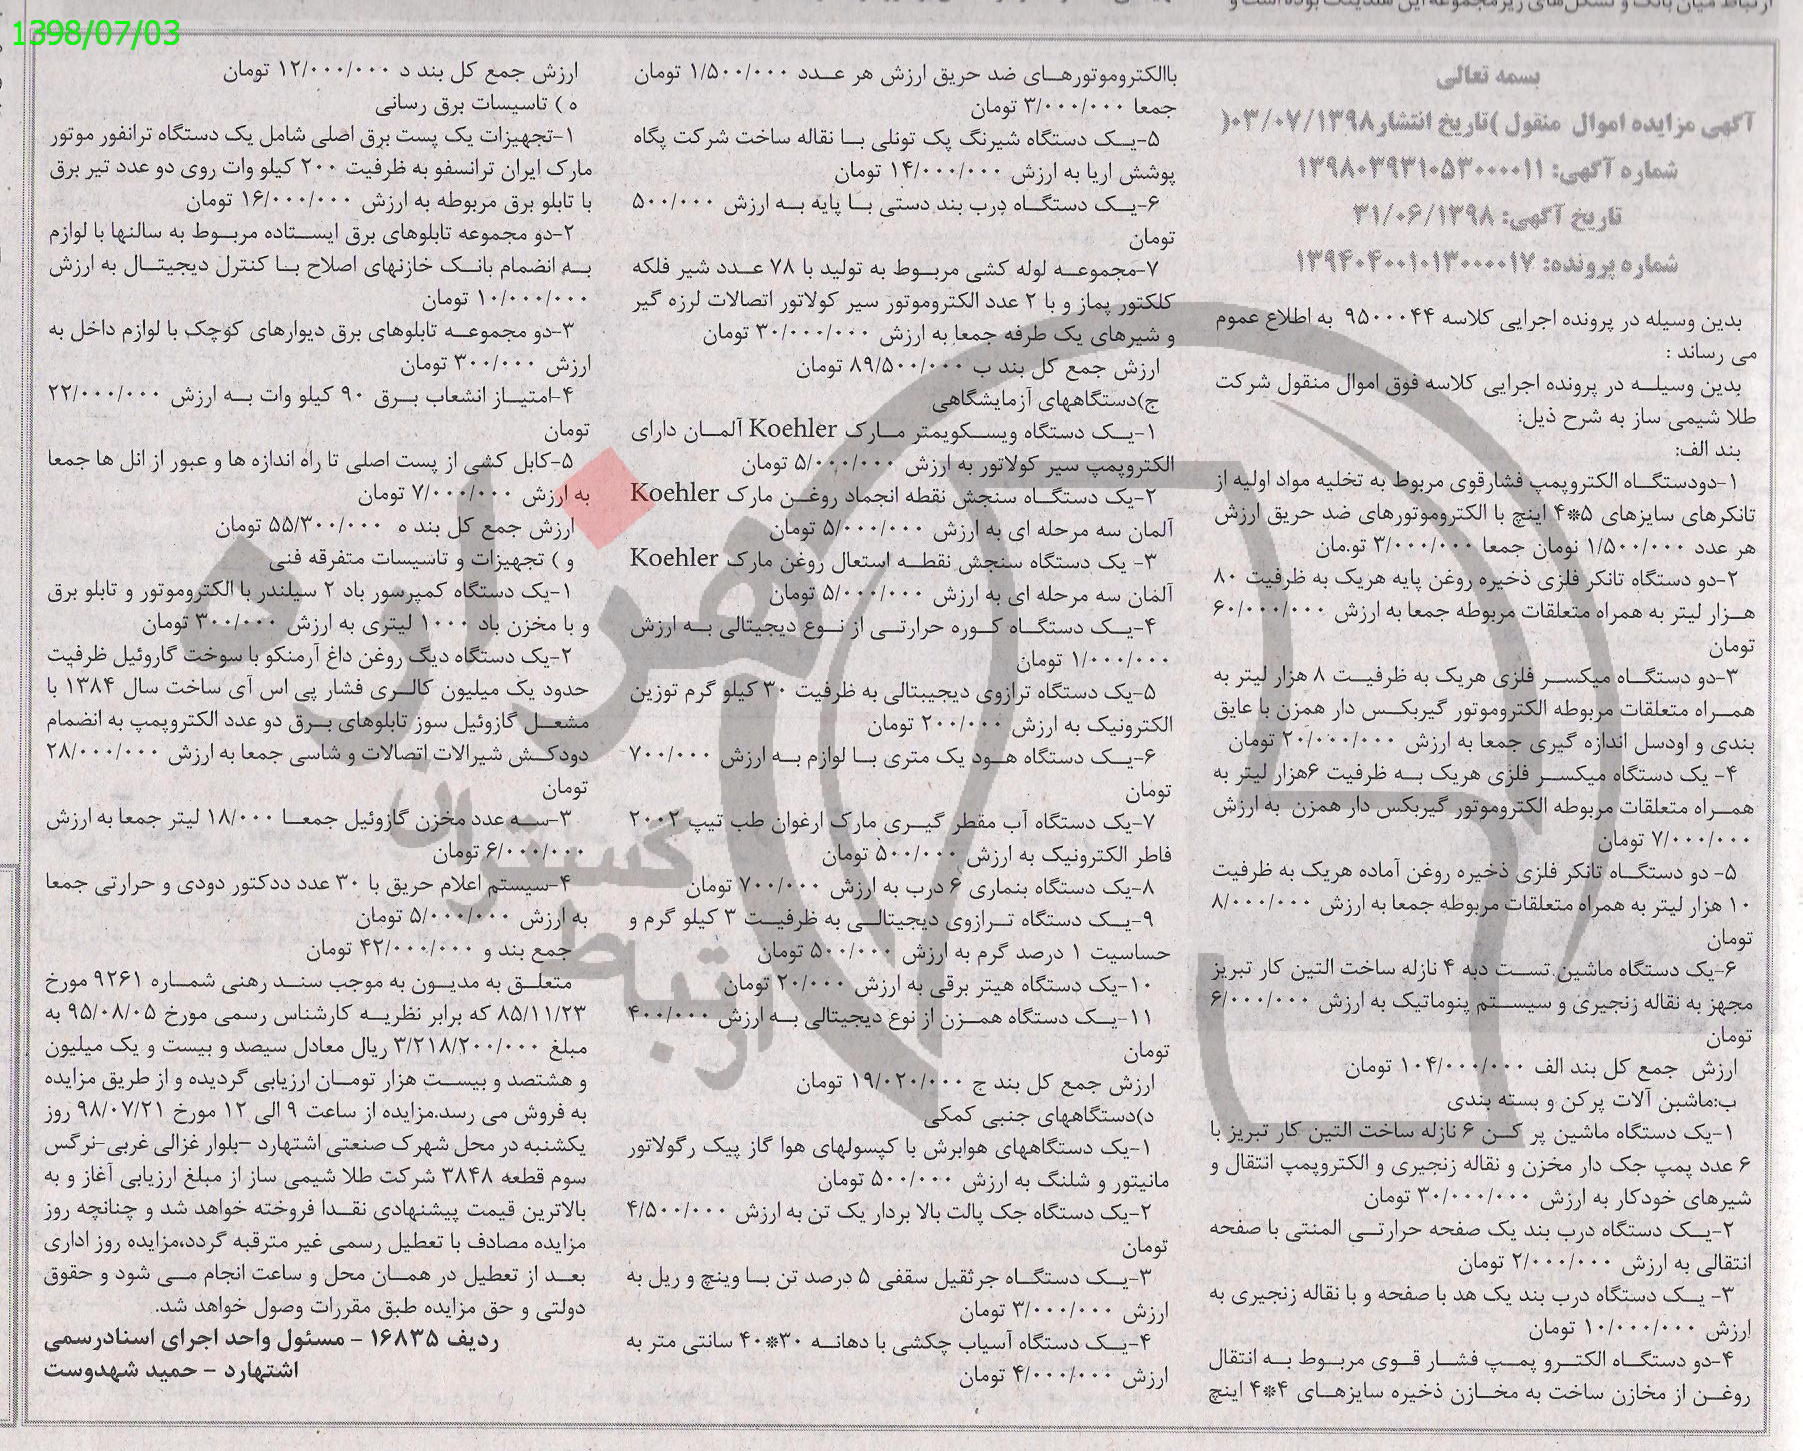 1398/07/03
بسمه تعالی
آگهی مزایده اموال منقول )تاریخ انتشار۰۳/۰۷/۱۳۹۸(
شماره آگهی: ۱۳۹۸۰۳۹۳۱۰۵۳۰۰۰۰۱۱
تاریخ آگهی: ۳۱/۰۶/۱۳۹۸
شماره پرونده: ۱۳۹۴۰۴۰۰۱۰۱۳۰۰۰۰۱۷
بدین وسیله در پرونده اجرایی کلاسه ۹۵۰۰۰۴۴ به اطلاع عموم
می رساند :
بدین وسیلـه در پرونده اجرایی کلاسه فوق اموال منقول شرکت
طلا شیمی ساز به شرح ذیل:
بند الف:
۱-دودستگـاه الکتروپمپ فشارقوی مربوط به تخلیه مواد اولیه از
تانکرهای سایزهای ۵*۴ اینچ با الکتروموتورهای ضد حریق ارزش
هر عدد ۱/۵۰۰/۰۰۰ تومان جمعا ۳/۰۰۰/۰۰۰ تومان
۲-دو دستگاه تانکر فلزی ذخیره روغن پایه هریک به ظرفیت ۸۰
هـزار لیتر به همراه متعلقات مربوطه جمعا به ارزش ۶۰/۰۰۰/۰۰۰
تومان
۳-دو دستگـاه میکسـر فلزی هریک به ظرفیـت ۸ هزار لیتر به
همـراه متعلقات مربوطه الکتروموتور گیربکـس دار همزن با عایق
بندی و اودسل اندازه گیری جمعا به ارزش ۲۰/۰۰۰/۰۰۰ تومان
۴- یک دستگاه میکسـر فلزی هریک بـه ظرفیت ۶هزار لیتر به
همـراه متعلقات مربوطه الکتروموتور گیربکس دار همزن به ارزش
۷/۰۰۰/۰۰۰ تومان
۵- دو دستگـاه تانکر فلزی ذخیره روغن آماده هریک به ظرفیت
۱۰ هزار لیتر به همراه متعلقات مربوطه جمعا به ارزش ۸/۰۰۰/۰۰۰
تومان
۶-یک دستگاه ماشین تسـت دبه ۴ نازله ساخت التین کار تبریز
مجهز به نقاله زنجیری و سیسـتم پنوماتیک به ارزش ۶/۰۰۰/۰۰۰
تومان
ارزش جمع کل بند الف ۱۰۴/۰۰۰/۰۰۰ تومان
ب:ماشین آلات پرکن و بسته بندی
۱-یک دستگاه ماشین پر کـن ۶ نازله ساخت التین کار تبریز با
۶ عدد پمپ جک دار مخزن و نقاله زنجیری و الکتروپمپ انتقال و
شیرهای خودکار به ارزش ۳۰/۰۰۰/۰۰۰ تومان
۲-یـک دستگاه درب بند یک صفحه حرارتـی المنتی با صفحه
انتقالی به ارزش ۲/۰۰۰/۰۰۰ تومان
۳- یـک دستگاه درب بند یک هد با صفحه و با نقاله زنجیری به
ارزش ۱۰/۰۰۰/۰۰۰ تومان
۴-دو دستگـاه الکتـرو پمـپ فشـار قـوی مربـوط بـه انتقال
روغـن از مخازن ساخت به مخـازن ذخیره سایزهـای ۴*۴ اینچ
باالکتروموتورهـای ضد حریق ارزش هر عـدد ۱/۵۰۰/۰۰۰ تومان
جمعا ۳/۰۰۰/۰۰۰ تومان
۵-یـک دستگاه شیرنگ پک تونلی بـا نقاله ساخت شرکت پگاه
پوشش اریا به ارزش ۱۴/۰۰۰/۰۰۰ تومان
۶-یـک دستگـاه درب بند دستی بـا پایه بـه ارزش ۵۰۰/۰۰۰
تومان
۷-مجموعـه لوله کشی مربـوط به تولید با ۷۸ عـدد شیر فلکه
کلکتور پماز و با ۲ عدد الکتروموتور سیر کولاتور اتصالات لرزه گیر
و شیرهای یک طرفه جمعا به ارزش ۳۰/۰۰۰/۰۰۰ تومان
ارزش جمع کل بند ب ۸۹/۵۰۰/۰۰۰ تومان
ج)دستگاههای آزمایشگاهی
۱-یـک دستگاه ویسـکویمتر مـارک Koehler آلمـان دارای
الکتروپمپ سیر کولاتور به ارزش ۵/۰۰۰/۰۰۰ تومان
۲-یک دستگـاه سنجش نقطه انجماد روغـن مارک Koehler
آلمان سه مرحله ای به ارزش ۵/۰۰۰/۰۰۰ تومان
۳- یک دستگاه سنجش نقطـه استعال روغن مارک Koehler
آلمان سه مرحله ای به ارزش ۵/۰۰۰/۰۰۰ تومان
۴-یـک دستگـاه کـوره حرارتـی از نـوع دیجیتالی بـه ارزش
۱/۰۰۰/۰۰۰ تومان
۵-یک دستگاه ترازوی دیجیبتالی به ظرفیت ۳۰ کیلو گرم توزین
الکترونیک به ارزش ۲۰۰/۰۰۰ تومان
۶-یـک دستگاه هـود یک متری بـا لوازم بـه ارزش ۷۰۰/۰۰۰
تومان
۷-یک دستگاه آب مقطر گیـری مارک ارغوان طب تیپ ۲۰۰۲
فاطر الکترونیک به ارزش ۵۰۰/۰۰۰ تومان
۸-یک دستگاه بنماری ۶ درب به ارزش ۷۰۰/۰۰۰ تومان
۹-یـک دستگاه تـرازوی دیجیتالـی به ظرفیـت ۳ کیلو گرم و
حساسیت ۱ درصد گرم به ارزش ۵۰۰/۰۰۰ تومان
۱۰-یک دستگاه هیتر برقی به ارزش ۲۰/۰۰۰ تومان
۱۱-یـک دستگاه همـزن از نوع دیجیتالی بـه ارزش ۴۰۰/۰۰۰
تومان
ارزش جمع کل بند ج ۱۹/۰۲۰/۰۰۰ تومان
د)دستگاههای جنبی کمکی
۱-یک دستگاههای هوابرش با کپسولهای هوا گاز پیک رگولاتور
مانیتور و شلنگ به ارزش ۵۰۰/۰۰۰ تومان
۲-یک دستگاه جک پالت بالا بردار یک تن به ارزش ۴/۵۰۰/۰۰۰
تومان
۳-یـک دستگـاه جرثقیل سقفی ۵ درصد تن بـا وینچ و ریل به
ارزش ۳/۰۰۰/۰۰۰ تومان
۴-یـک دستگاه آسیاب چکشی با دهانـه ۳۰*۴۰ سانتی متر به
ارزش ۴/۰۰۰/۰۰۰ تومان
ارزش جمع کل بند د ۱۲/۰۰۰/۰۰۰ تومان
ه ) تاسیسات برق رسانی
۱-تجهیزات یک پست برق اصلی شامل یک دستگاه ترانفور موتور
مارک ایران ترانسفو به ظرفیت ۲۰۰ کیلو وات روی دو عدد تیر برق
با تابلو برق مربوطه به ارزش ۱۶/۰۰۰/۰۰۰ تومان
۲-دو مجموعه تابلوهای برق ایسـتاده مربـوط به سالنها با لوازم
بـه انضمام بانـک خازنهای اصلاح بـا کنترل دیجیتـال به ارزش
۱۰/۰۰۰/۰۰۰ تومان
۳-دو مجموعـه تابلوهای برق دیوارهای کوچک با لوازم داخل به
ارزش ۳۰۰/۰۰۰ تومان
۴-امتیـاز انشعاب بـرق ۹۰ کیلو وات بـه ارزش ۲۲/۰۰۰/۰۰۰
تومان
۵-کابل کشی از پست اصلی تا راه اندازه ها و عبور از انل ها جمعا
به ارزش ۷/۰۰۰/۰۰۰ تومان
ارزش جمع کل بند ه ۵۵/۳۰۰/۰۰۰ تومان
و ) تجهیزات و تاسیسات متفرقه فنی
۱-یک دستگاه کمپرسور باد ۲ سیلندر با الکتروموتور و تابلو برق
و با مخزن باد ۱۰۰۰ لیتری به ارزش ۳۰۰/۰۰۰ تومان
۲-یک دستگاه دیگ روغن داغ آرمنکو با سوخت گاروئیل ظرفیت
حدود یک میلیون کالـری فشار پی اس آی ساخت سال ۱۳۸۴ با
مشعـل گازوئیل سوز تابلوهای بـرق دو عدد الکتروپمپ به انضمام
دودکـش شیرالات اتصالات و شاسی جمعا به ارزش ۲۸/۰۰۰/۰۰۰
تومان
۳-سـه عدد مخزن گازوئیل جمعـا ۱۸/۰۰۰ لیتر جمعا به ارزش
۶/۰۰۰/۰۰۰ تومان
۴-سیستم اعلام حریق با ۳۰ عدد ددکتور دودی و حرارتی جمعا
به ارزش ۵/۰۰۰/۰۰۰ تومان
جمع بند و ۴۲/۰۰۰/۰۰۰ تومان
متعلـق به مدیـون به موجب سنـد رهنی شمـاره ۹۲۶۱ مورخ
۸۵/۱۱/۲۳ که برابر نظریـه کارشناس رسمی مورخ ۹۵/۰۸/۰۵ به
مبلغ ۳/۲۱۸/۲۰۰/۰۰۰ ریال معادل سیصد و بیست و یک میلیون
و هشتصد و بیسـت هزار تومـان ارزیابی گردیده و از طریق مزایده
به فروش می رسد.مزایده از ساعت ۹ الی ۱۲ مورخ ۹۸/۰۷/۲۱ روز
یکشنبه در محل شهرک صنعتی اشتهارد –بلوار غزالی غربی-نرگس
سوم قطعه ۳۸۴۸ شرکت طلا شیمی ساز از مبلغ ارزیابی آغاز و به
بالاترین قیمت پیشنهادی نقـدا فروخته خواهد شد و چنانچه روز
مزایده مصادف با تعطیل رسمی غیر مترقبه گردد،مزایده روز اداری
بعـد از تعطیل در همـان محل و ساعت انجام مـی شود و حقوق
دولتی و حق مزایده طبق مقررات وصول خواهد شد.
ردیف ۱۶۸۳۵ – مسئول واحد اجرای اسنادرسمی
اشتهارد – حمید شهدوست